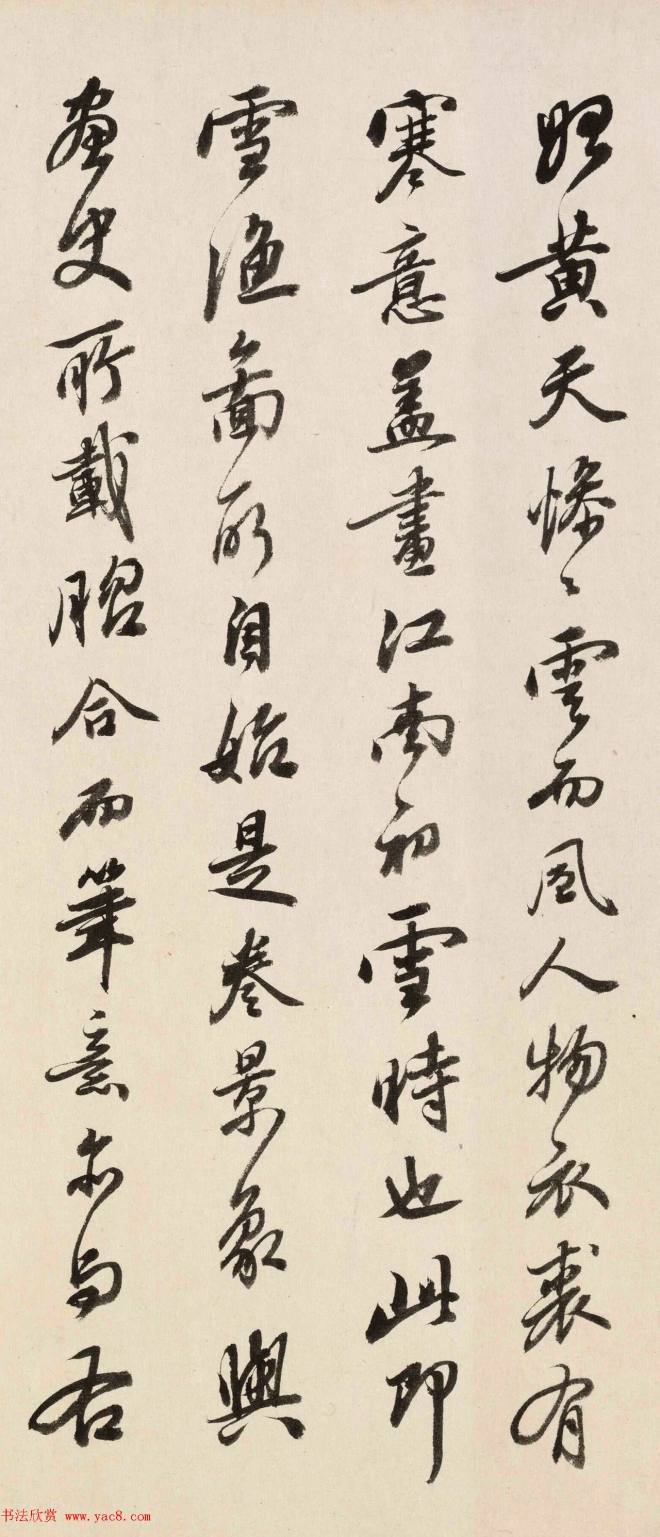 黄天惨〻雲而風人物衣裘有
寒意蓋畫江南初雪時也此即
雪漁圖所自始是卷景象與
畫史所載脗合而筆意亦与右
书法欣赏 www.yac8.com